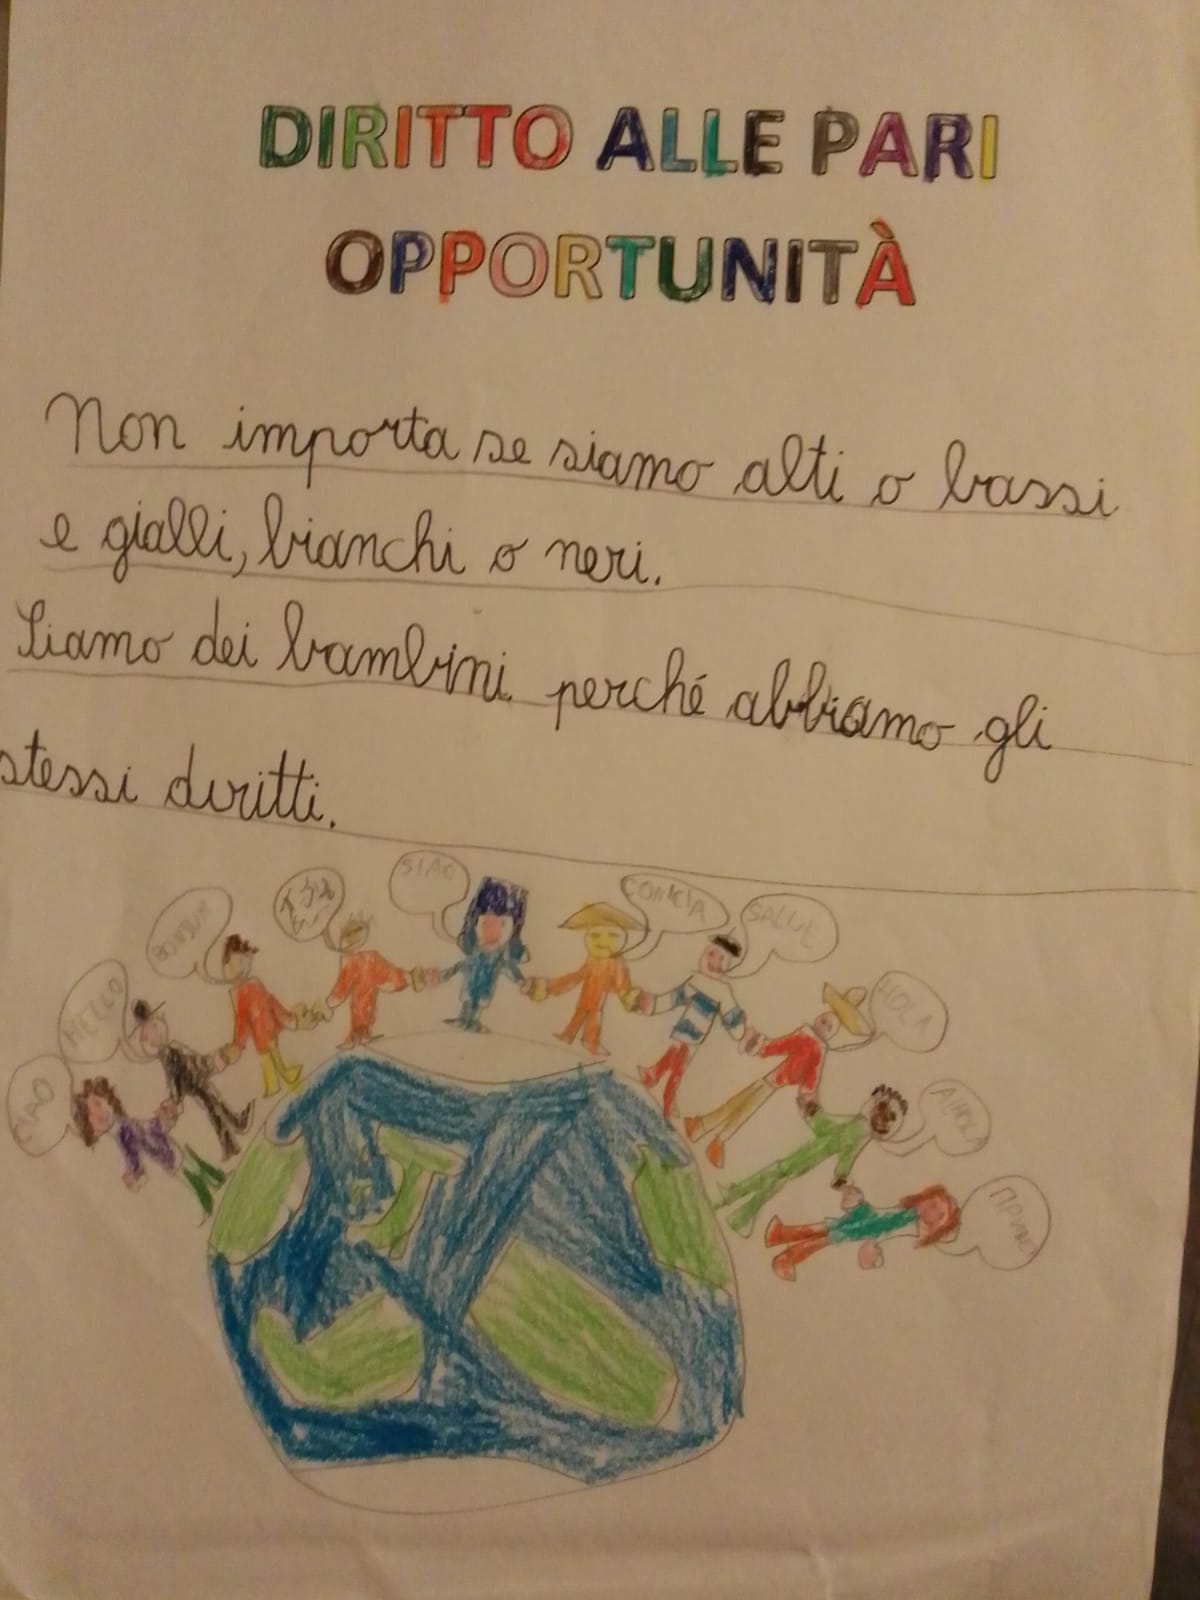 DIRITTO ALLE PARI
OPPORTUNITÀ
Non importa se siamo alti o bassi
e gialli, bianchi o neri.
Siamo dei bambini perché abbiamo gli
stessi diritti.
CIAO
HELLO
BONJUR
SIAO
CONICIA
SALUE
HOLA
ПРИВЕ